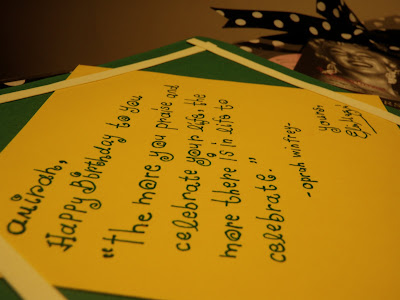 Happy Birthday to you
"The more you praise and
celebrate your life, the
more there is in life to
celebrate."
-oprah winfrey-
yours,